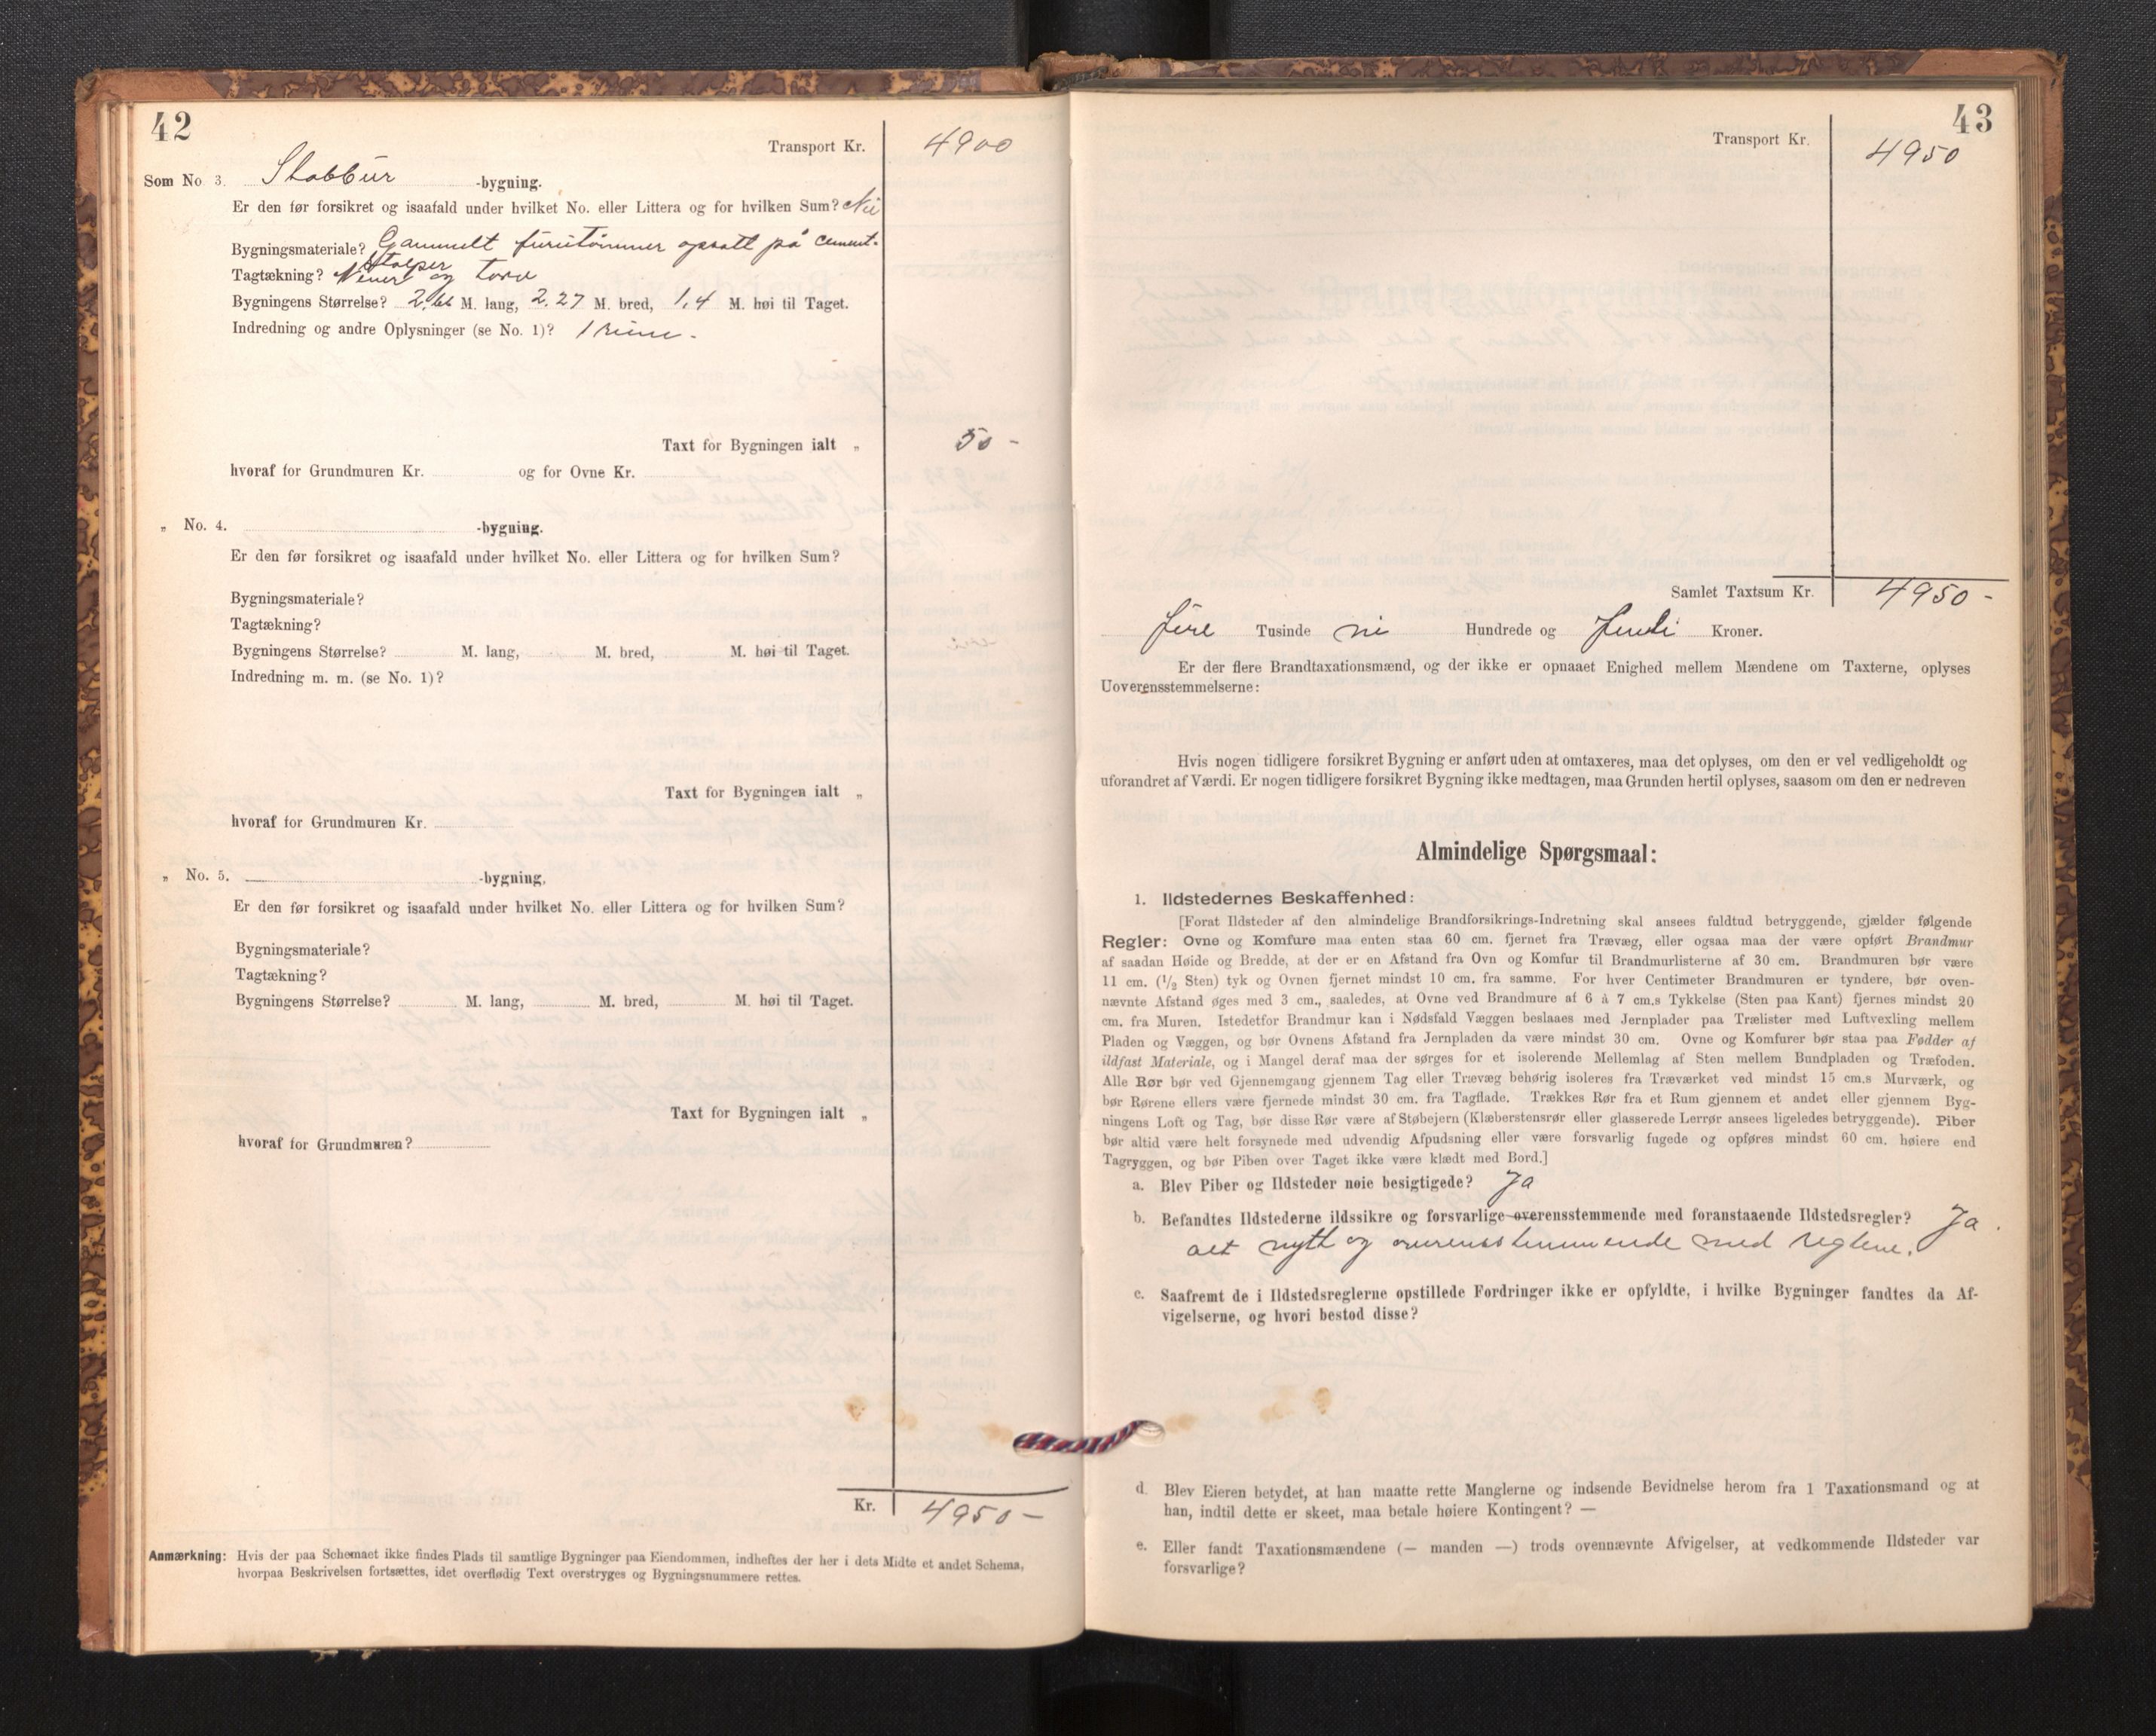 42
Transport Kr. 4900
Som No. 3. Stabbur -bygning.
Er den før forsikret og isaafald under hvilket No. eller Littera og for hvilken Sum? Nei
Bygningsmateriale? Gammelt furutømmer opsatt på cement-
stolper
Tagtækning? Never og torv
Bygningens Størrelse? M. lang, 2.27 M. bred, 1,4 M. høi til Taget.
Indredning og andre Oplysninger (se No. 1)? 1 rum.
Taxt for Bygningen ialt „ 50 -
hvoraf for Grundmuren Kr. og for Ovne Kr.
„ No. 4. -bygning.
Er den før forsikret og isaafald under hvilket No. eller Littera og for hvilken Sum?
Bygningsmateriale?
Tagtækning?
Bygningens Størrelse? M. lang, M. bred, M. høi til Taget.
Indredning m. m. (se No. 1)?
Taxt for Bygningen ialt „
hvoraf for Grundmuren Kr.
„ No. 5. -bygning.
Er den før forsikret og isaafald under hvilket No. eller Littera og for hvilken Sum?
Bygningsmateriale?
Tagtækning?
Bygningens Størrelse? M. lang, M. bred, M. høi til Taget.
Taxt for Bygningen ialt „
hvoraf for Grundmuren?
Kr. 4950 -
Anmærkning: Hvis der paa Schemaet ikke findes Plads til samtlige Bygninger paa Eiendommen, indheftes der her i dets Midte et andet Schema,
hvorpaa Beskrivelsen fortsættes, idet overflødig Text overstryges og Bygningsnummere rettes.
43
Transport Kr. 4950
Samlet Taxtsum Kr. 4950 -
fire Tusinde ni Hundrede og femti Kroner.
Er der flere Brandtaxationsmænd, og der ikke er opnaaet Enighed mellem Mændene om Taxterne, oplyses
Uoverensstemmelserne:
Hvis nogen tidligere forsikret Bygning er anført uden at omtaxeres, maa det oplyses, om den er vel vedligeholdt og
uforandret af Værdi. Er nogen tidligere forsikret Bygning ikke medtagen, maa Grunden hertil oplyses, saasom om den er nedreven
Almindelige Spørgsmaal:
1. Ildstedernes Beskaffenhed:
[Forat Ildsteder af den almindelige Brandforsikrings-Indretning skal ansees fuldtud betryggende, gjælder følgende
Regler: Ovne og Komfure maa enten staa 60 cm. fjernet fra Trævæg, eller ogsaa maa der være opført Brandmur
af saadan Høide og Bredde, at der er en Afstand fra Ovn og Komfur til Brandmurlisterne af 30 cm. Brandmuren bør være
11 cm. (1/2 Sten) tyk og Ovnen fjernet mindst 10 cm. fra samme. For hver Centimeter Brandmuren er tyndere, bør oven-
nævnte Afstand øges med 3 cm., saaledes, at Ovne ved Brandmure af 6 à 7 cm.s Tykkelse (Sten paa Kant) fjernes mindst 20
cm. fra Muren. Istedetfor Brandmur kan i Nødsfald Væggen beslaaes med Jernplader paa Trælister med Luftvexling mellem
Pladen og Væggen, og bør Ovnens Afstand fra Jernpladen da være mindst 30 cm. Ovne og Komfurer bør staa paa Fødder af
ildfast Materiale, og i Mangel deraf maa der sørges for et isolerende Mellemlag af Sten mellem Bundpladen og Træfoden.
Alle Rør bør ved Gjennemgang gjennem Tag eller Trævæg behørig isoleres fra Træværket ved mindst 15 cm.s Murværk, og
bør Rørene ellers være fjernede mindst 30 cm. fra Tagflade. Trækkes Rør fra et Rum gjennem et andet eller gjennem Byg-
ningens Loft og Tag, bør disse Rør være af Støbejern (Klæberstensrør eller glasserede Lerrør ansees ligeledes betryggende). Piber
bør altid være helt forsynede med udvendig Afpudsning eller være forsvarlig fugede og opføres mindst 60 cm. høiere end
Tagryggen, og bør Piben over Taget ikke være klædt med Bord.]
a. Blev Piber og Ildsteder nøie besigtigede? Ja
b. Befandtes Ildstederne ildssikre og forsvarlige overensstemmende med foranstaaende Ildstedsregler? Ja.
alt nytt og overensstemmende med reglene.
c. Saafremt de i Ildstedsreglerne opstillede Fordringer ikke er opfyldte, i hvilke Bygninger fandtes da Af-
vigelserne, og hvori bestod disse?
d. Blev Eieren betydet, at han maatte rette Manglerne og indsende Bevidnelse herom fra 1 Taxationsmand og at
han, indtil dette er skeet, maa betale høiere Kontingent? —
e. Eller fandt Taxationsmændene (— manden —) trods ovennævnte Afvigelser, at vedkommende Ildsteder var
forsvarlige?